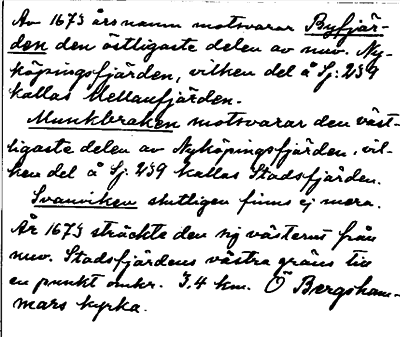 Av 1673 års namn motsvarar Byfjär-
den den östligaste delen av nuv. Ny-
köpingsfjärden, vilken del å Sj: 239
kallas Mellanfjärden.
Munkbraken motsvarar den väst-
ligaste delen av Nyköpingsfjärden, vil-
ken del å Sj: 239 kallas Stadsfjärden.
Svanviken slutligen finns ej mera.
År 1673 sträckte den sig västerut från
nuv. Stadsfjärdens västra gräns till
en punkt omkr. 3.4 km. Ö Bergsham-
mars kyrka.